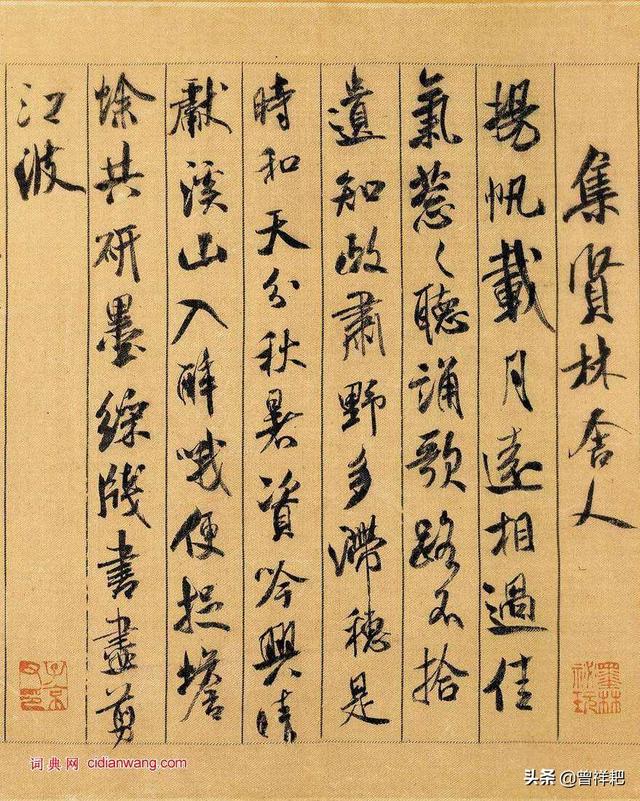 集賢林舍人
揚帆載月遠相過佳
氣蔥〻聽誦歌路不拾
遺知政肅野多滯穗是
時和天分秋暑資吟興晴
獻溪山入醉哦便捉蟾
蜍共研墨綵牋書盡剪
江波
墨林祕玩
子京父印
词典网 cidianwang.com
头条 @曾祥耙